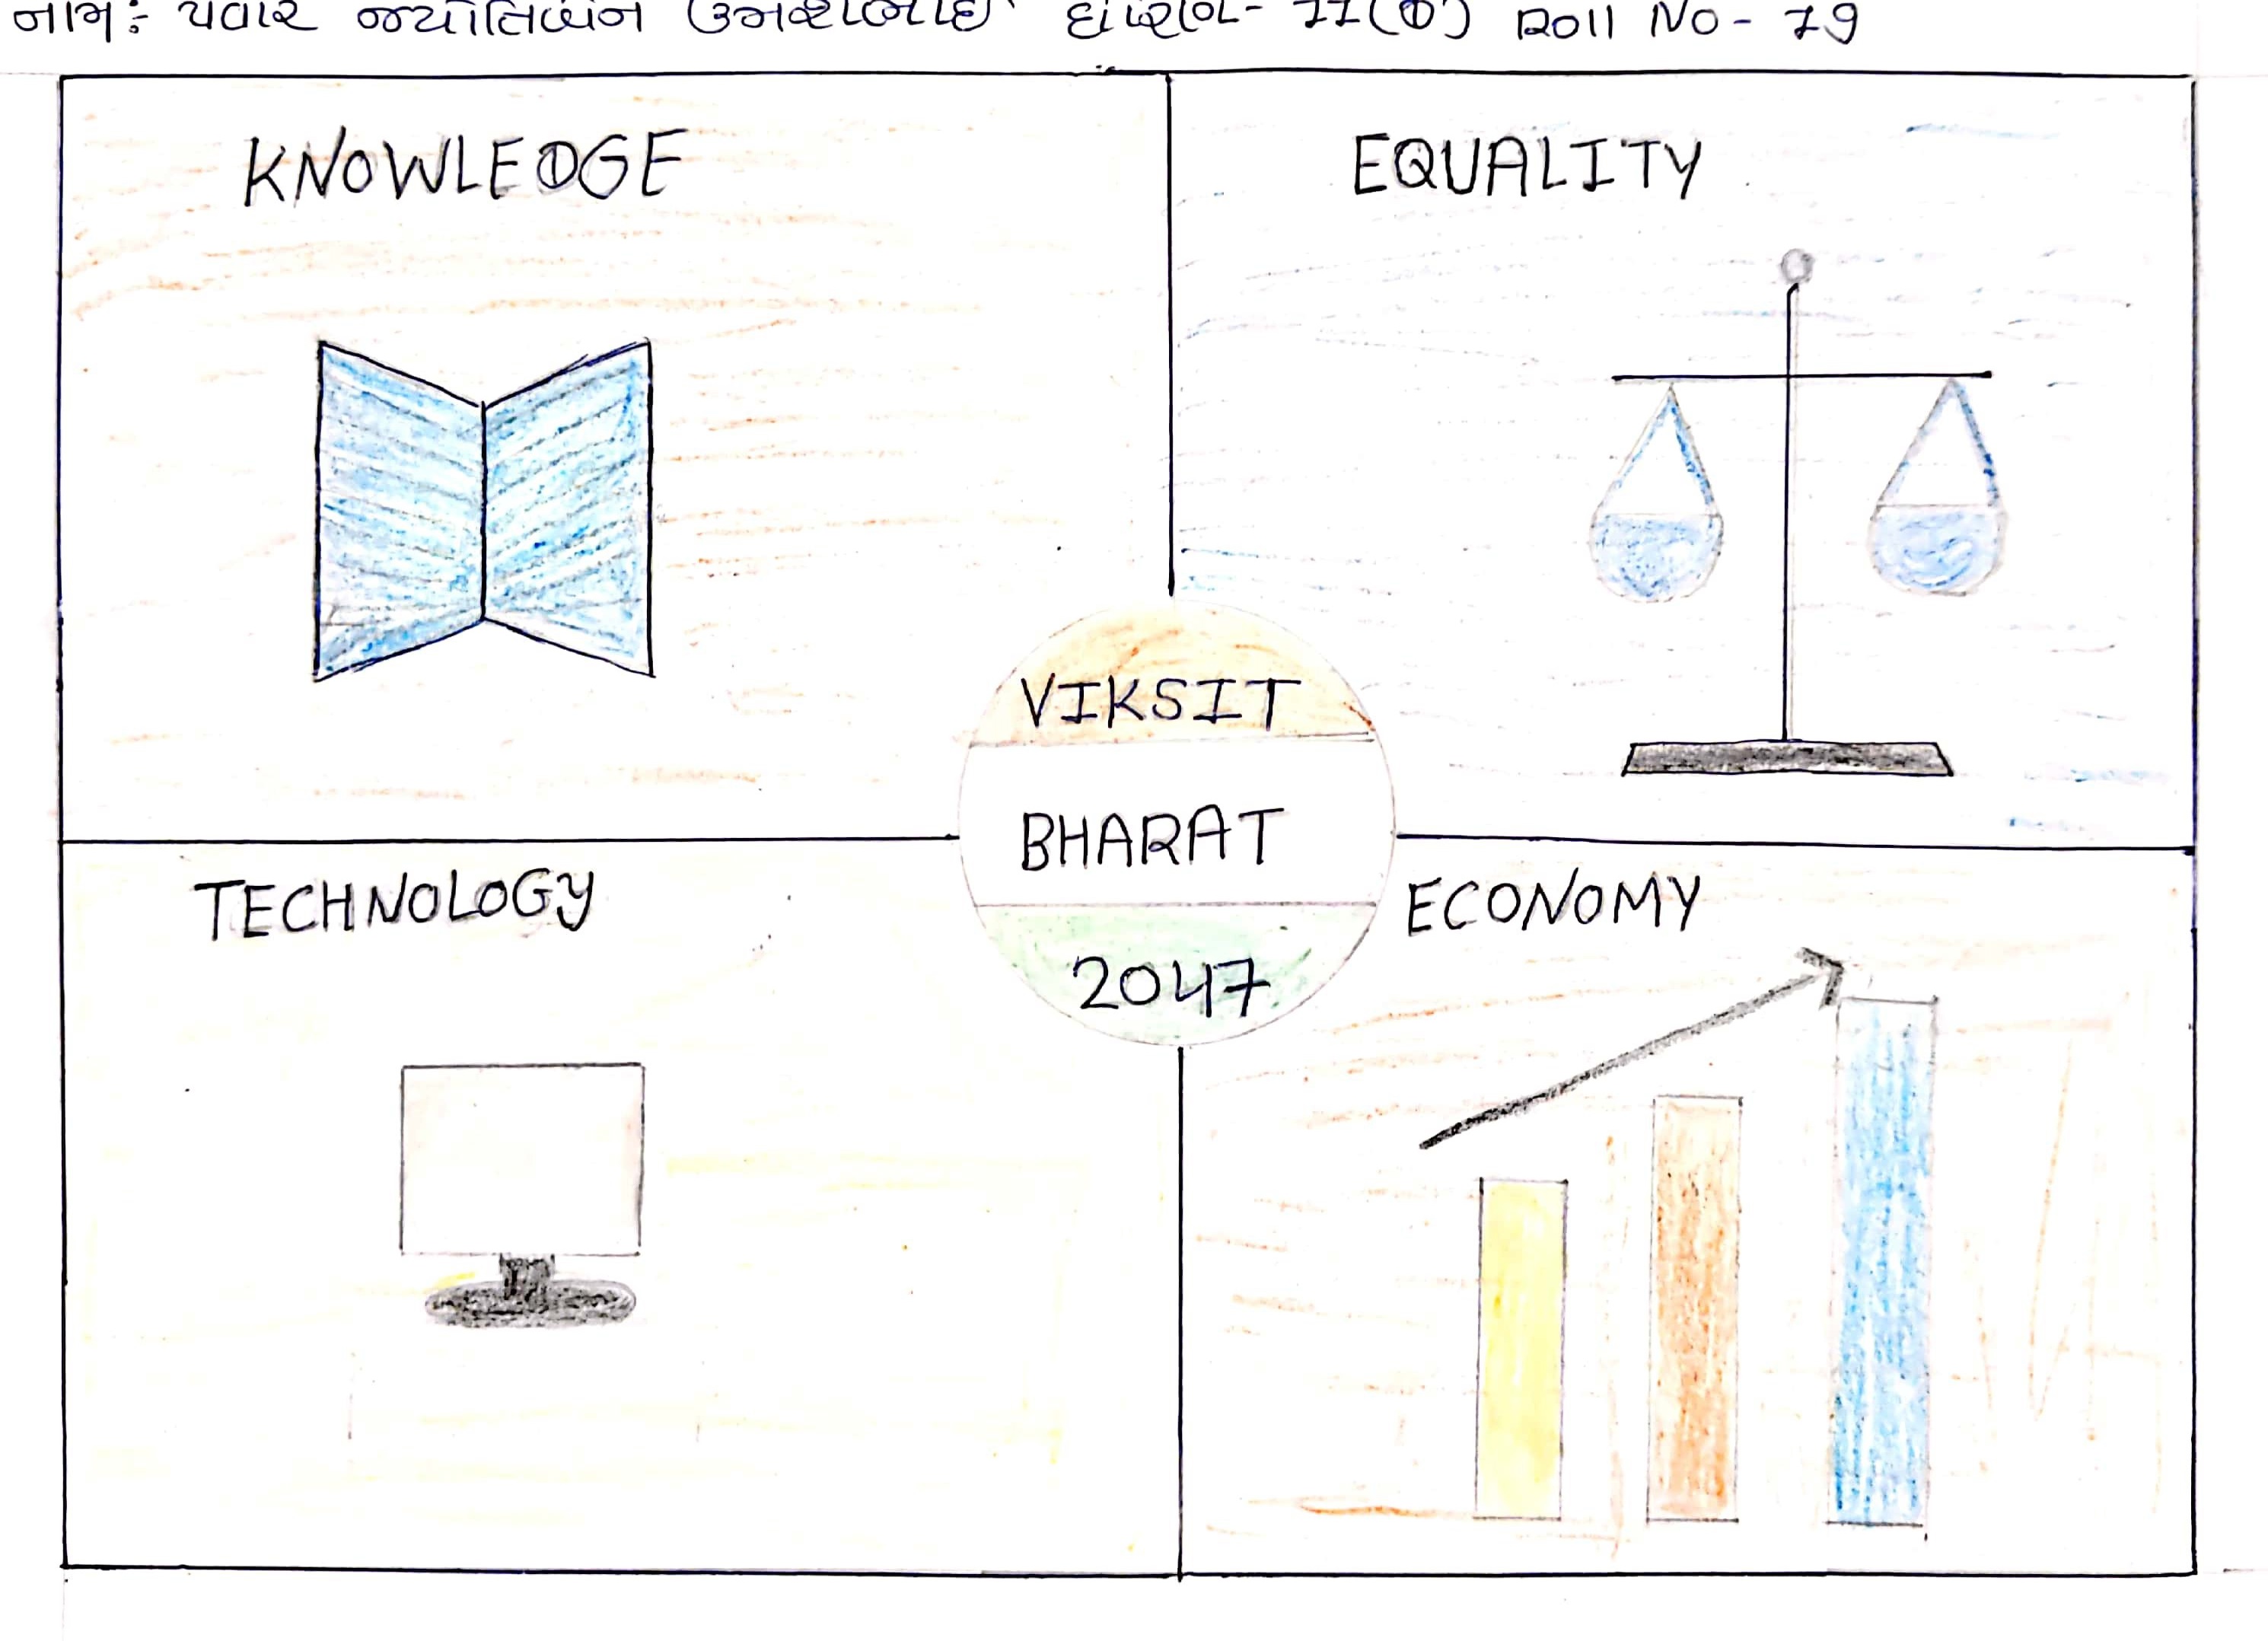 નામ: પવાર જ્યોતિબેન ઉમેશભાઈ ધોરણ- 11(D) Roll No - 79
KNOWLEDGE
EQUALITY
VIKSIT
BHARAT
2047
TECHNOLOGY
ECONOMY